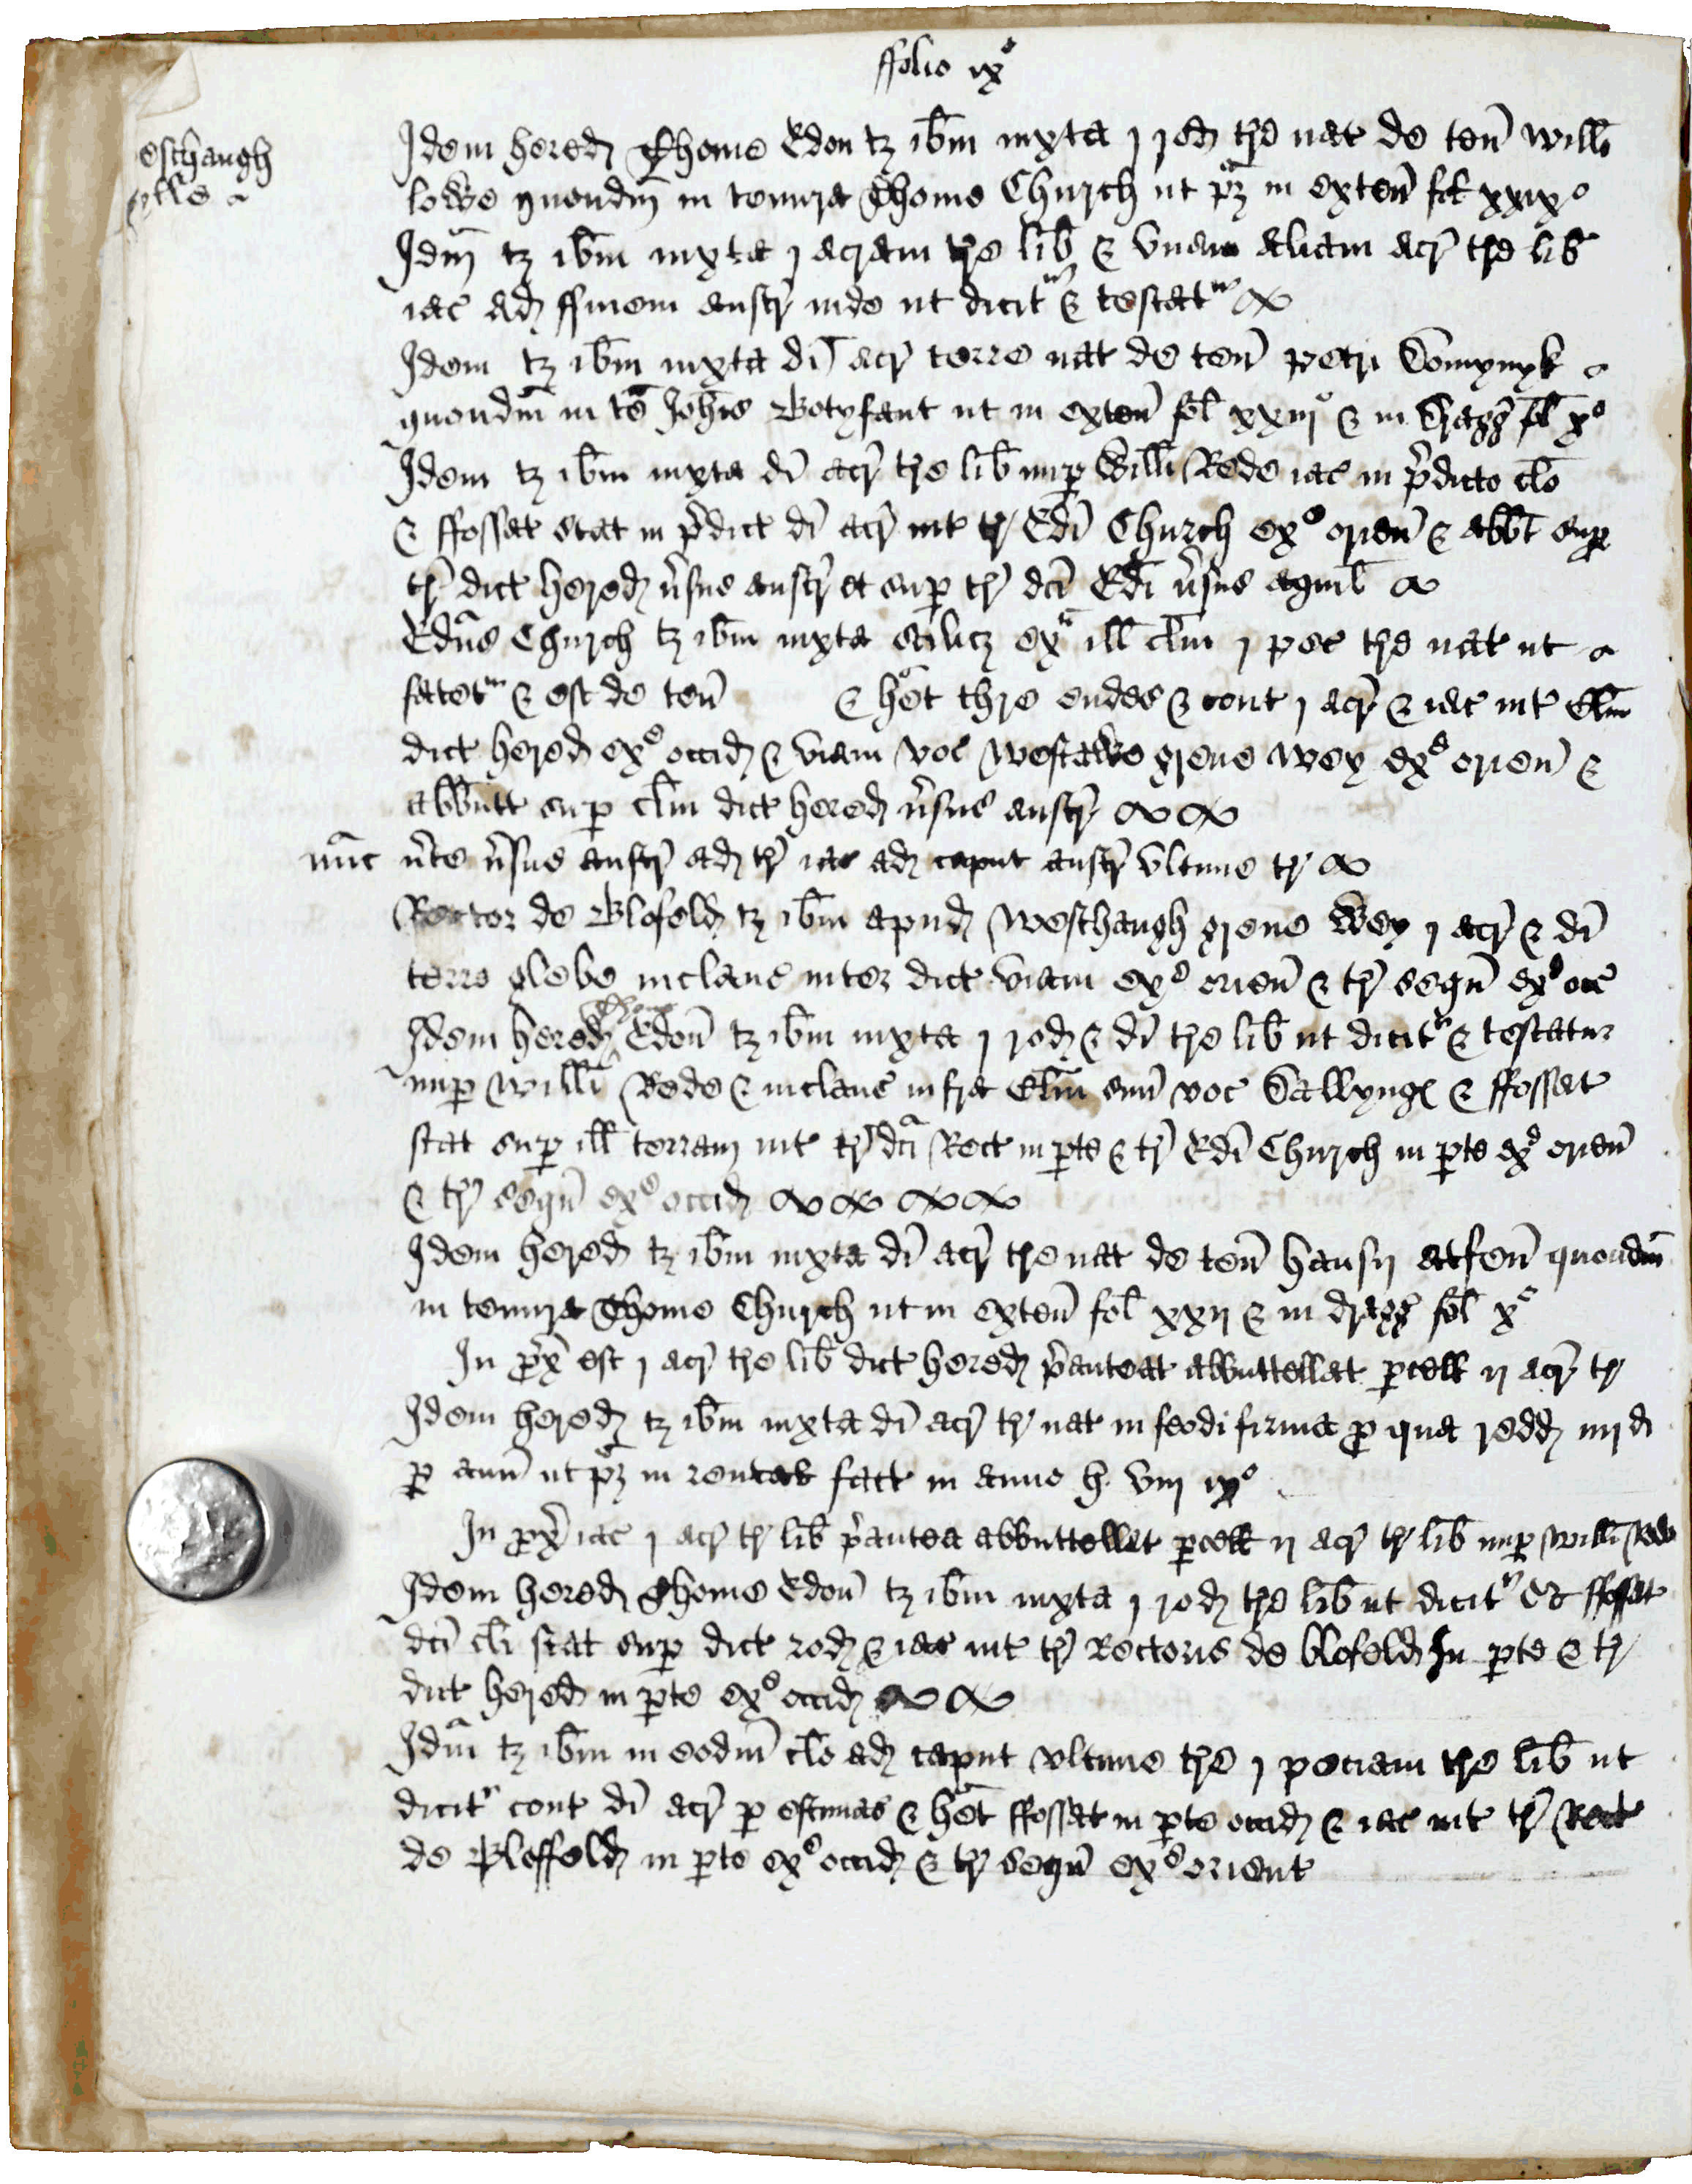 ffolio ix°
esthaugh
Idem hered Thome Edon tz ibm iuxta j rod tre nat de ten Willi
ylls
lowe quondm in tenura Thome Church ut pz in exten fol xxix°
Idm tz ibm iuxta j acram tre lib & vnam aliam acr tre lib
iac ad ffinem austr inde ut dicitr & testatr
Idem tz ibm iuxta di acr terre nat de ten Petri Domynyk
quondm in te Johis Botyfant ut in exten fol xxiij° & in Dragg fol x°
Idem tz ibm iuxta di acr tre lib nup Willi Rede iac in pdicto clo
& ffossat stat in pdict di acr int tr Edi Church ex° orien & abbt sup
tr dict hered vsus austr et sup tr dci Edi vsus aquil
Edus Church tz ibm iuxta scilicz ex ill clm j pec tre nat ut
fatetr & est de ten & het thre endes & cont j acr & iac int Clm
dict hered ex° occid & viam voc Westawe grene wey ex° orien &
abbutt sup clm dict hered vsus austr
nunc vte vsus austr ad tr iac ad caput austr vltime tr
Rector de Blofeld tz ibm apud Westhaugh grene Wey j acr & di
terre glebe inclaus inter dict viam ex° orien & tr sequ ex° occ
Thome
Idem hered Edon tz ibm iuxta j rod & di tre lib ut dicitr & testatur
nup Willi Rede & inclaus infra Clm suu voc Dallyng & ffossat
stat sup ill terram int tr dci Rect in pte & tr Edi Church in pte ex° orien
& tr sequ ex° occid
Idem hered tz ibm iuxta di acr tre nat de ten hausy atfen quondm
in tenura Thome Church ut in exten fol xxij & in dragg fol x°
In px est j acr tre lib dict hered pantea abbuttellat pcell ij acr tr
Idem hered tz ibm iuxta di acr tr nat in feodi firma p qua redd iiij d
p ann ut pz in rental fact in anno h. viij ix°
In px iac j acr tr lib pantea abbuttellat pcell ij acr tr lib nup Willi Rede
Idem hered Thome Edon tz ibm iuxta j rod tre lib ut dicitr Et ffossat
dci cli stat sup dict rod & iac int tr Rectoris de blofeld In pte & tr
dict hered in pte ex° occid
Idm tz ibm in eodm clo ad caput vltime tre j peciam tre lib ut
dicitr cont di acr p estimac & het ffossat in pte occid & iac int tr Rect
de Bloffeld in pte ex° occid & tr sequ ex° orient